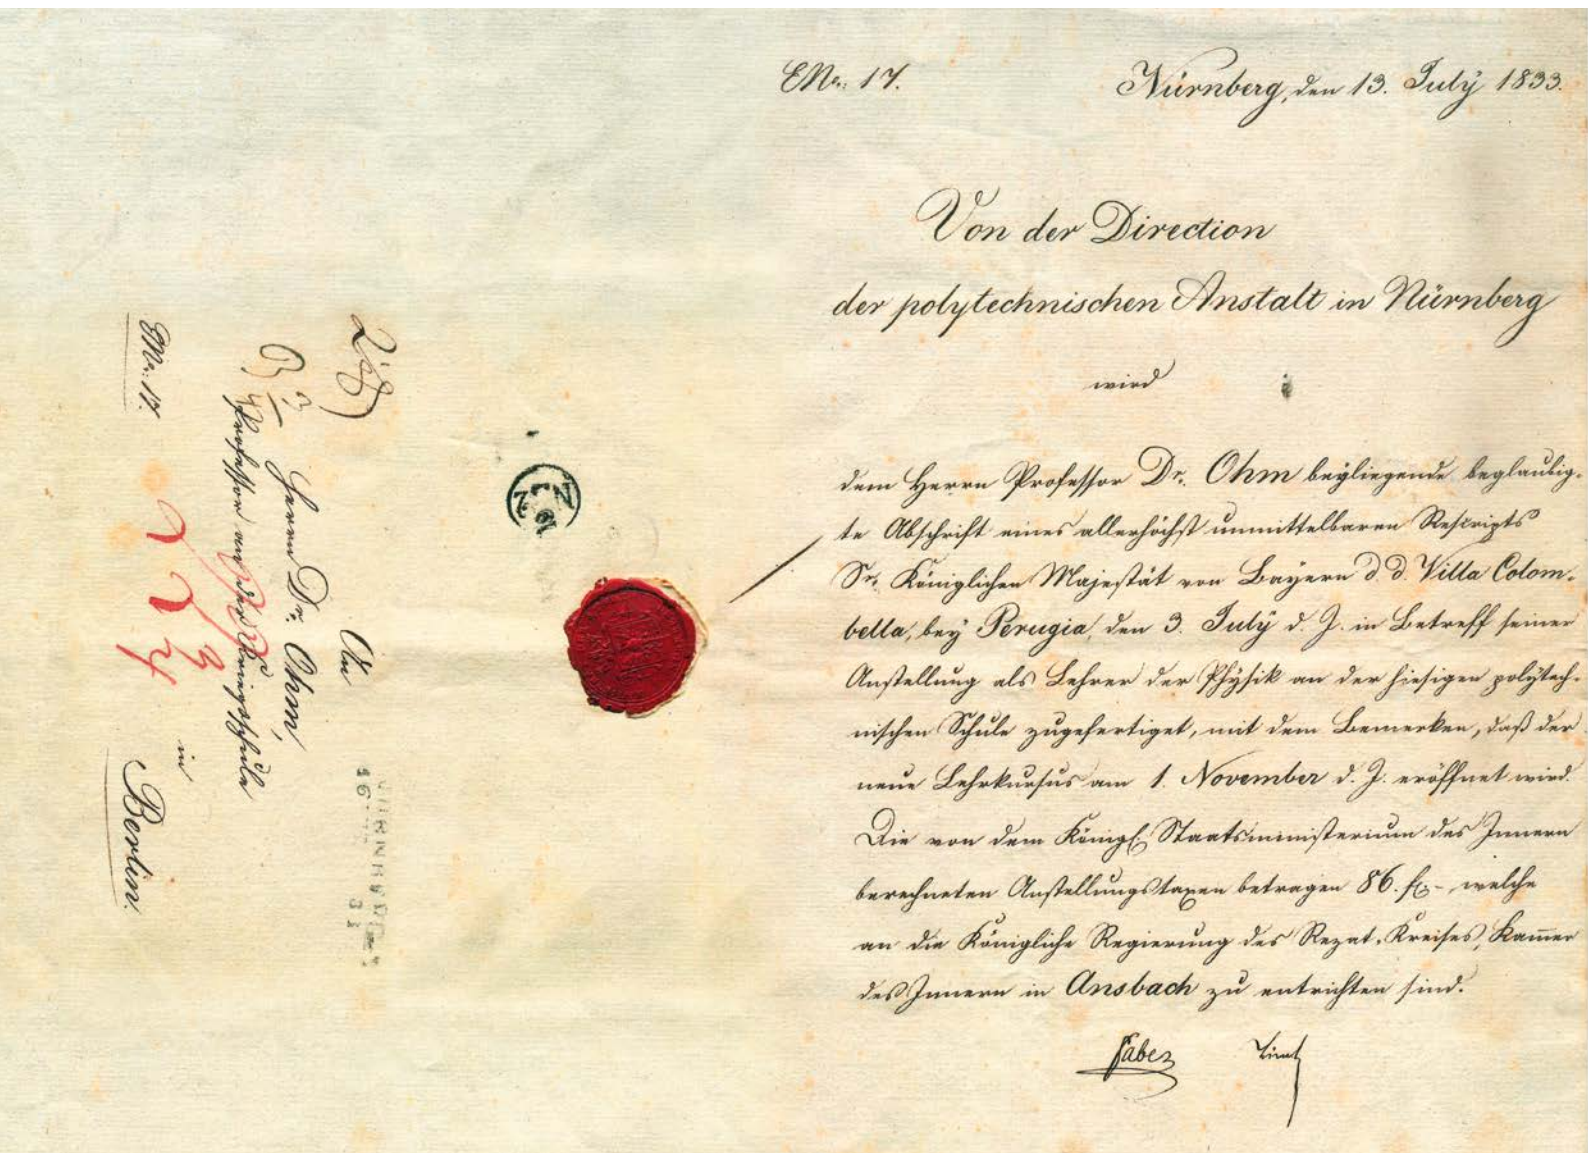 ENr. 17.
Nürnberg, den 13. July 1833.
Von der Direction
der polytechnischen Anstalt in Nürnberg
wird
dem Herrn Professor Dr. Ohm beyliegende beglaubig-
te Abschrift eines allerhöchst unmittelbaren Rescripts
Sr. Königlichen Majestät von Bayern d. d. Villa Colom-
bella, bey Perugia, den 3. July d. J. in Betreff seiner
Anstellung als Lehrer der Physik an der hiesigen polytech-
nischen Schule zugefertiget, mit dem Bemerken, daß der
neue Lehrkursus am 1. November d. J. eröffnet wird.
Die von dem Königl. Staatsministerium des Innern
berechneten Anstellungstaxen betragen 86. fl. - welche
an die Königliche Regierung des Rezat-Kreises, Kam̅er
des Innern in Ansbach zu entrichten sind.
Faber
An
Herrn Dr. Ohm,
Professor an der Kriegsschule
in
Berlin.
ENr. 17.